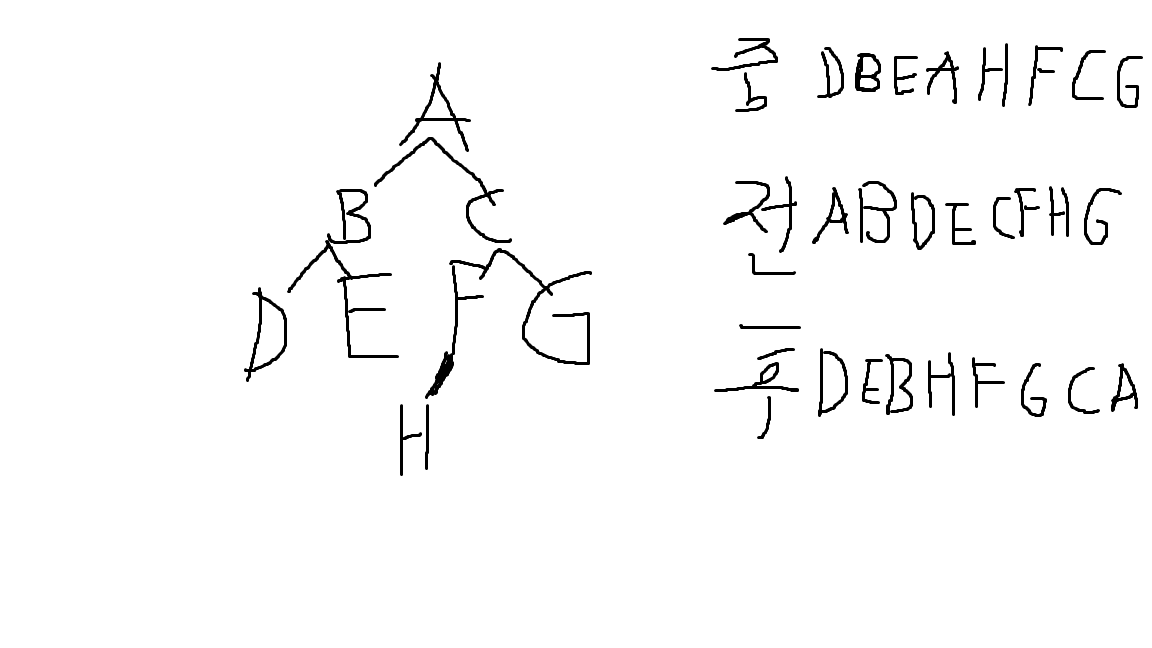 A
B C
D E F G
H
중 DBEAHFCG
전 ABDECFHG
후 DEBHFGCA